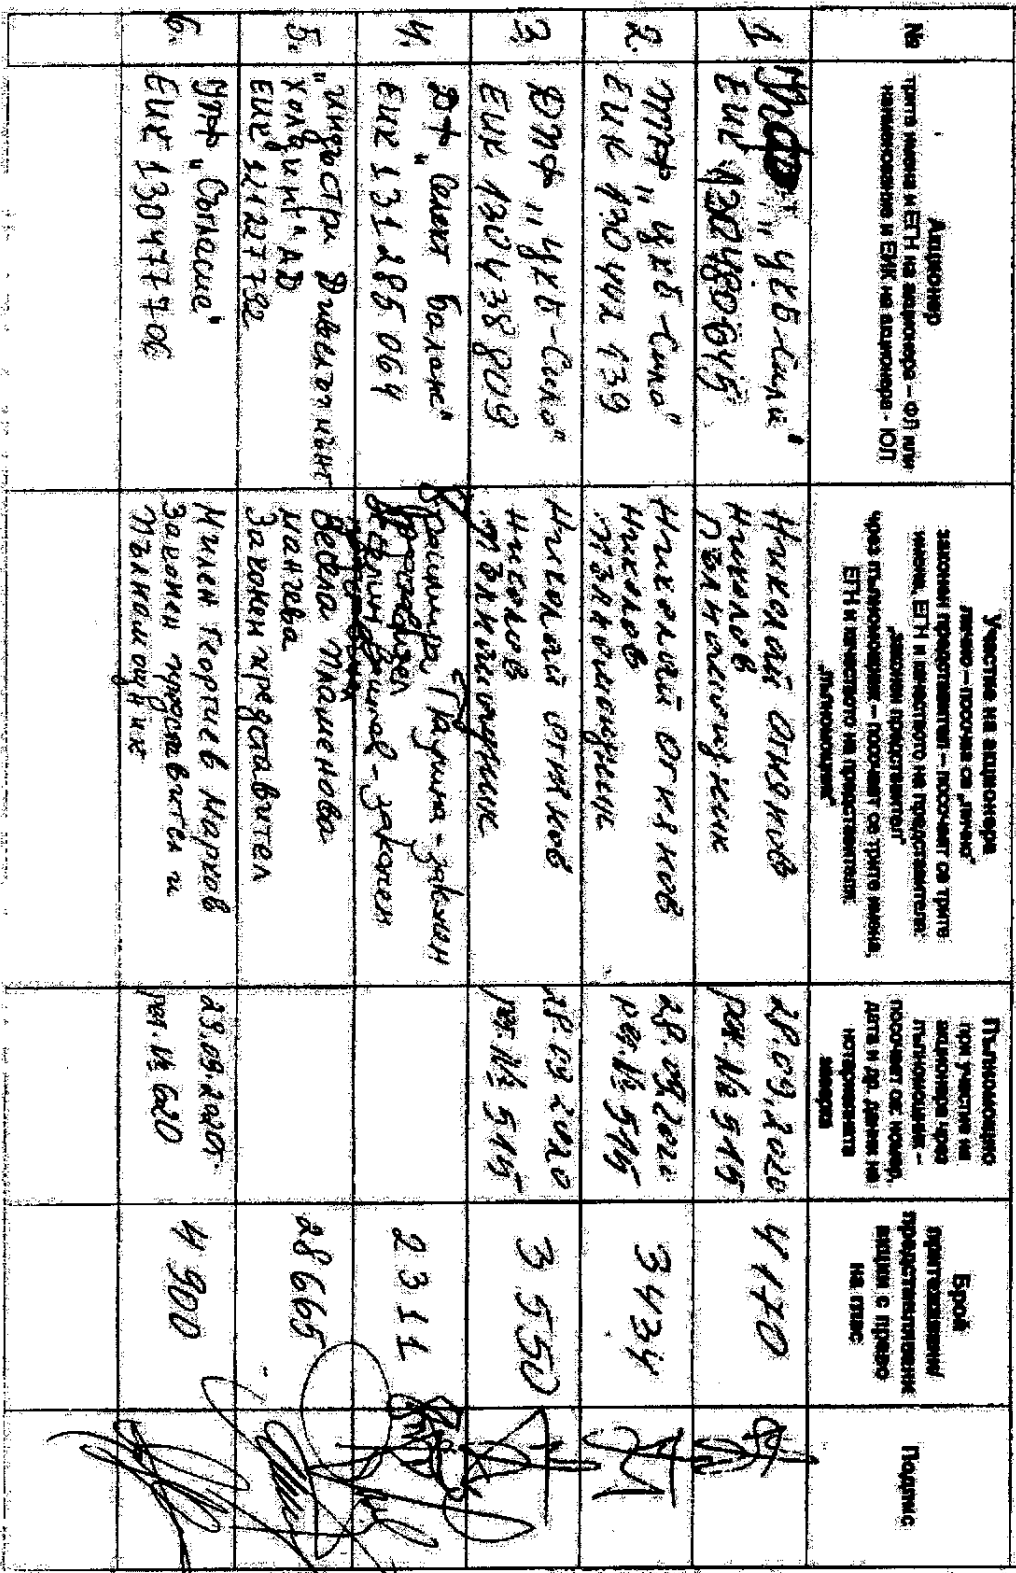 №
Акционер
трите имена и ЕГН на акционера – ФЛ или
наименование и ЕИК на акционера - ЮЛ
Участие на акционера
лично – посочва се „лично"
законен представител – посочват се трите
имена, ЕГН и качеството на представителя:
„законен представител"
чрез пълномощник – посочват се трите имена,
ЕГН и качеството на представителя:
„пълномощник"
Пълномощно
при участие на
акционера чрез
пълномощник –
посочват се: номер,
дата и др. данни на
нотариалната
заверка
Брой
притежавани/
представлявани
акции с право
на глас
Подпис
1.
"ЦКБ-Сила"
ЕИК
Николай Огнянов
Николов
Пълномощник
28.09.2020
рег. № 515
4170
2.
ППФ "ЦКБ-Сила"
ЕИК 130 442 139
Николай Огнянов
Николов
Пълномощник
28.09.2020
рег. № 515
3434
3.
ДПФ "ЦКБ-Сила"
ЕИК 130438809
Николай Огнянов
Николов
Пълномощник
28.09.2020
рег. № 515
3550
4.
ДФ "Селект Баланс"
ЕИК 131285064
законен
законен
2311
5.
"Индъстри Дивелопмънт
Холдинг" АД
ЕИК 121227792
Весела Пламенова
Манчева
Законен представител
28665
6.
УПФ "Съгласие"
ЕИК 130477706
Милен Георгиев Марков
Законен представител и
пълномощник
рег. № 620
4900